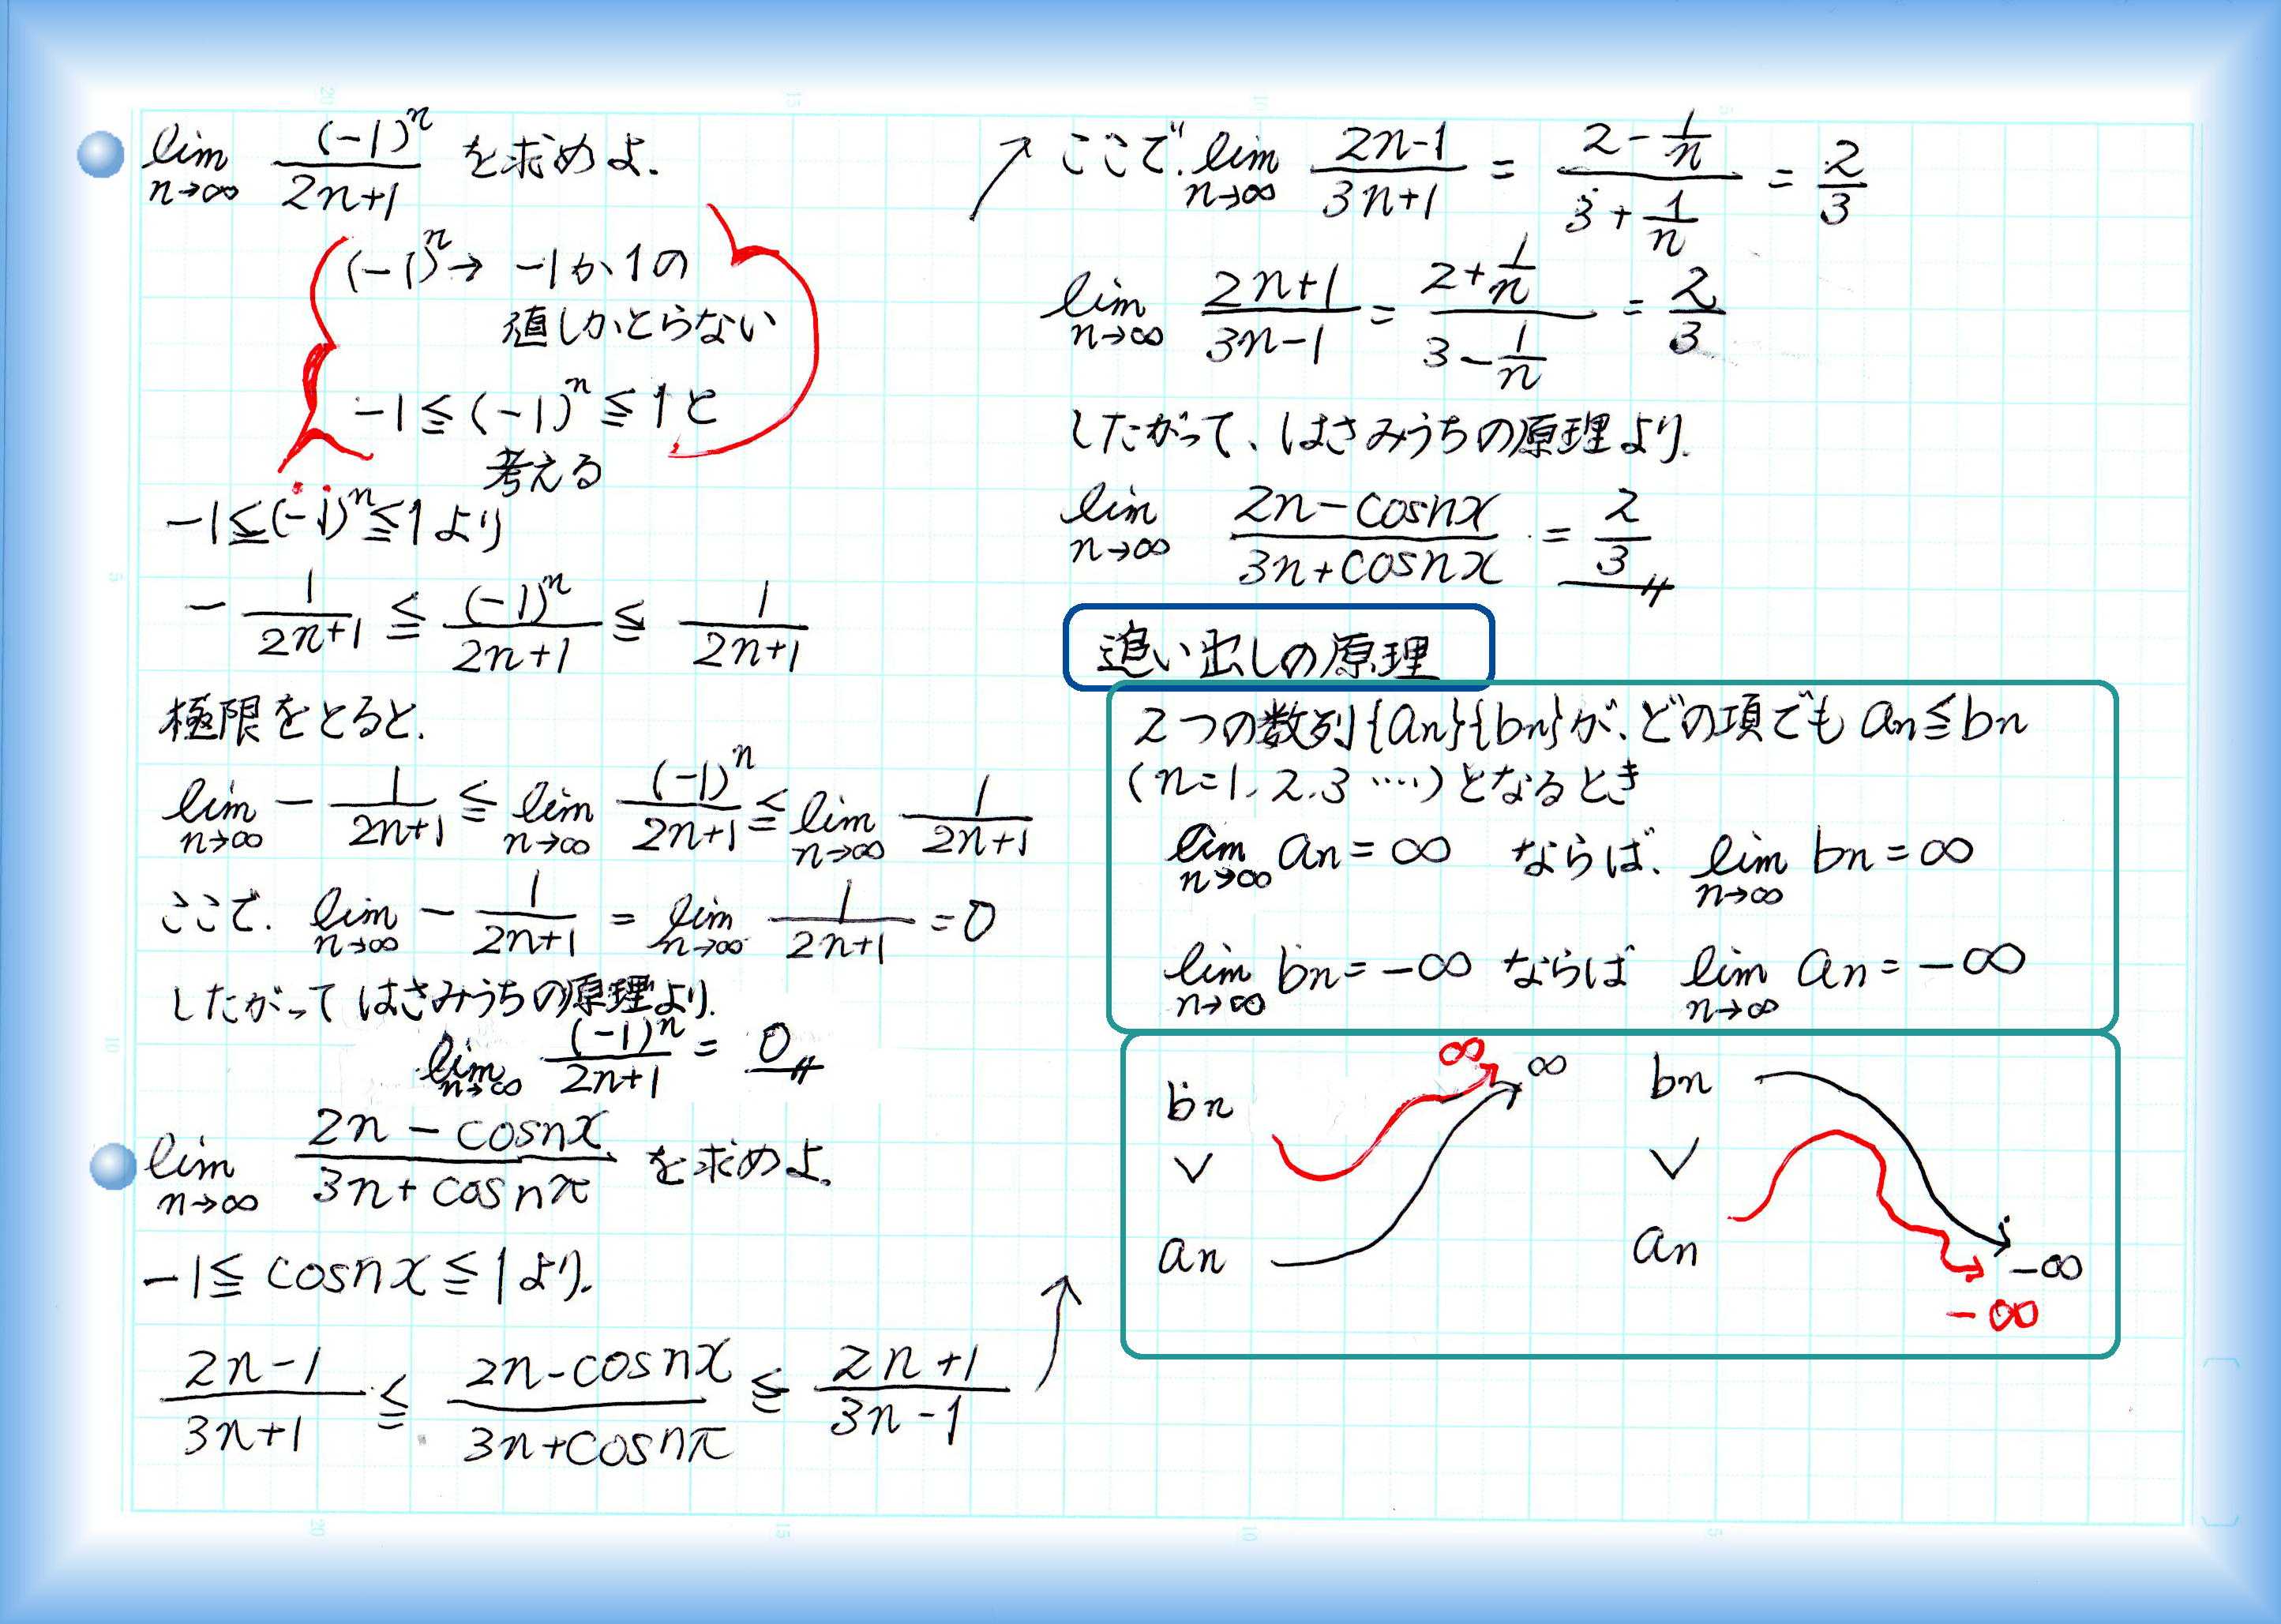 lim_{n→∞} (-1)^n/(2n+1) を求めよ.
(-1)^n → -1か1の
値しかとらない
-1≦(-1)^n≦1と
考える
-1≦(-1)^n≦1より
-1/(2n+1) ≦ (-1)^n/(2n+1) ≦ 1/(2n+1)
極限をとると.
lim_{n→∞} -1/(2n+1) ≦ lim_{n→∞} (-1)^n/(2n+1) ≦ lim_{n→∞} 1/(2n+1)
ここで. lim_{n→∞} -1/(2n+1) = lim_{n→∞} 1/(2n+1) = 0
したがって はさみうちの原理より.
lim_{n→∞} (-1)^n/(2n+1) = 0
lim_{n→∞} (2n-cosnx)/(3n+cosnπ) を求めよ.
-1≦cosnx≦1より.
(2n-1)/(3n+1) ≦ (2n-cosnx)/(3n+cosnπ) ≦ (2n+1)/(3n-1)
ここで. lim_{n→∞} (2n-1)/(3n+1) = (2-1/n)/(3+1/n) = 2/3
lim_{n→∞} (2n+1)/(3n-1) = (2+1/n)/(3-1/n) = 2/3
したがって、はさみうちの原理より.
lim_{n→∞} (2n-cosnx)/(3n+cosnx) = 2/3
追い出しの原理
2つの数列{an}{bn}が、どの項でも an≦bn
(n=1.2.3‥‥)となるとき
lim_{n→∞} an=∞ ならば. lim_{n→∞} bn=∞
lim_{n→∞} bn=-∞ ならば lim_{n→∞} an=-∞
∞ ∞
bn
∨
an
bn
∨
an
-∞
-∞
20 15 10 5
5
10
20 15 10 5